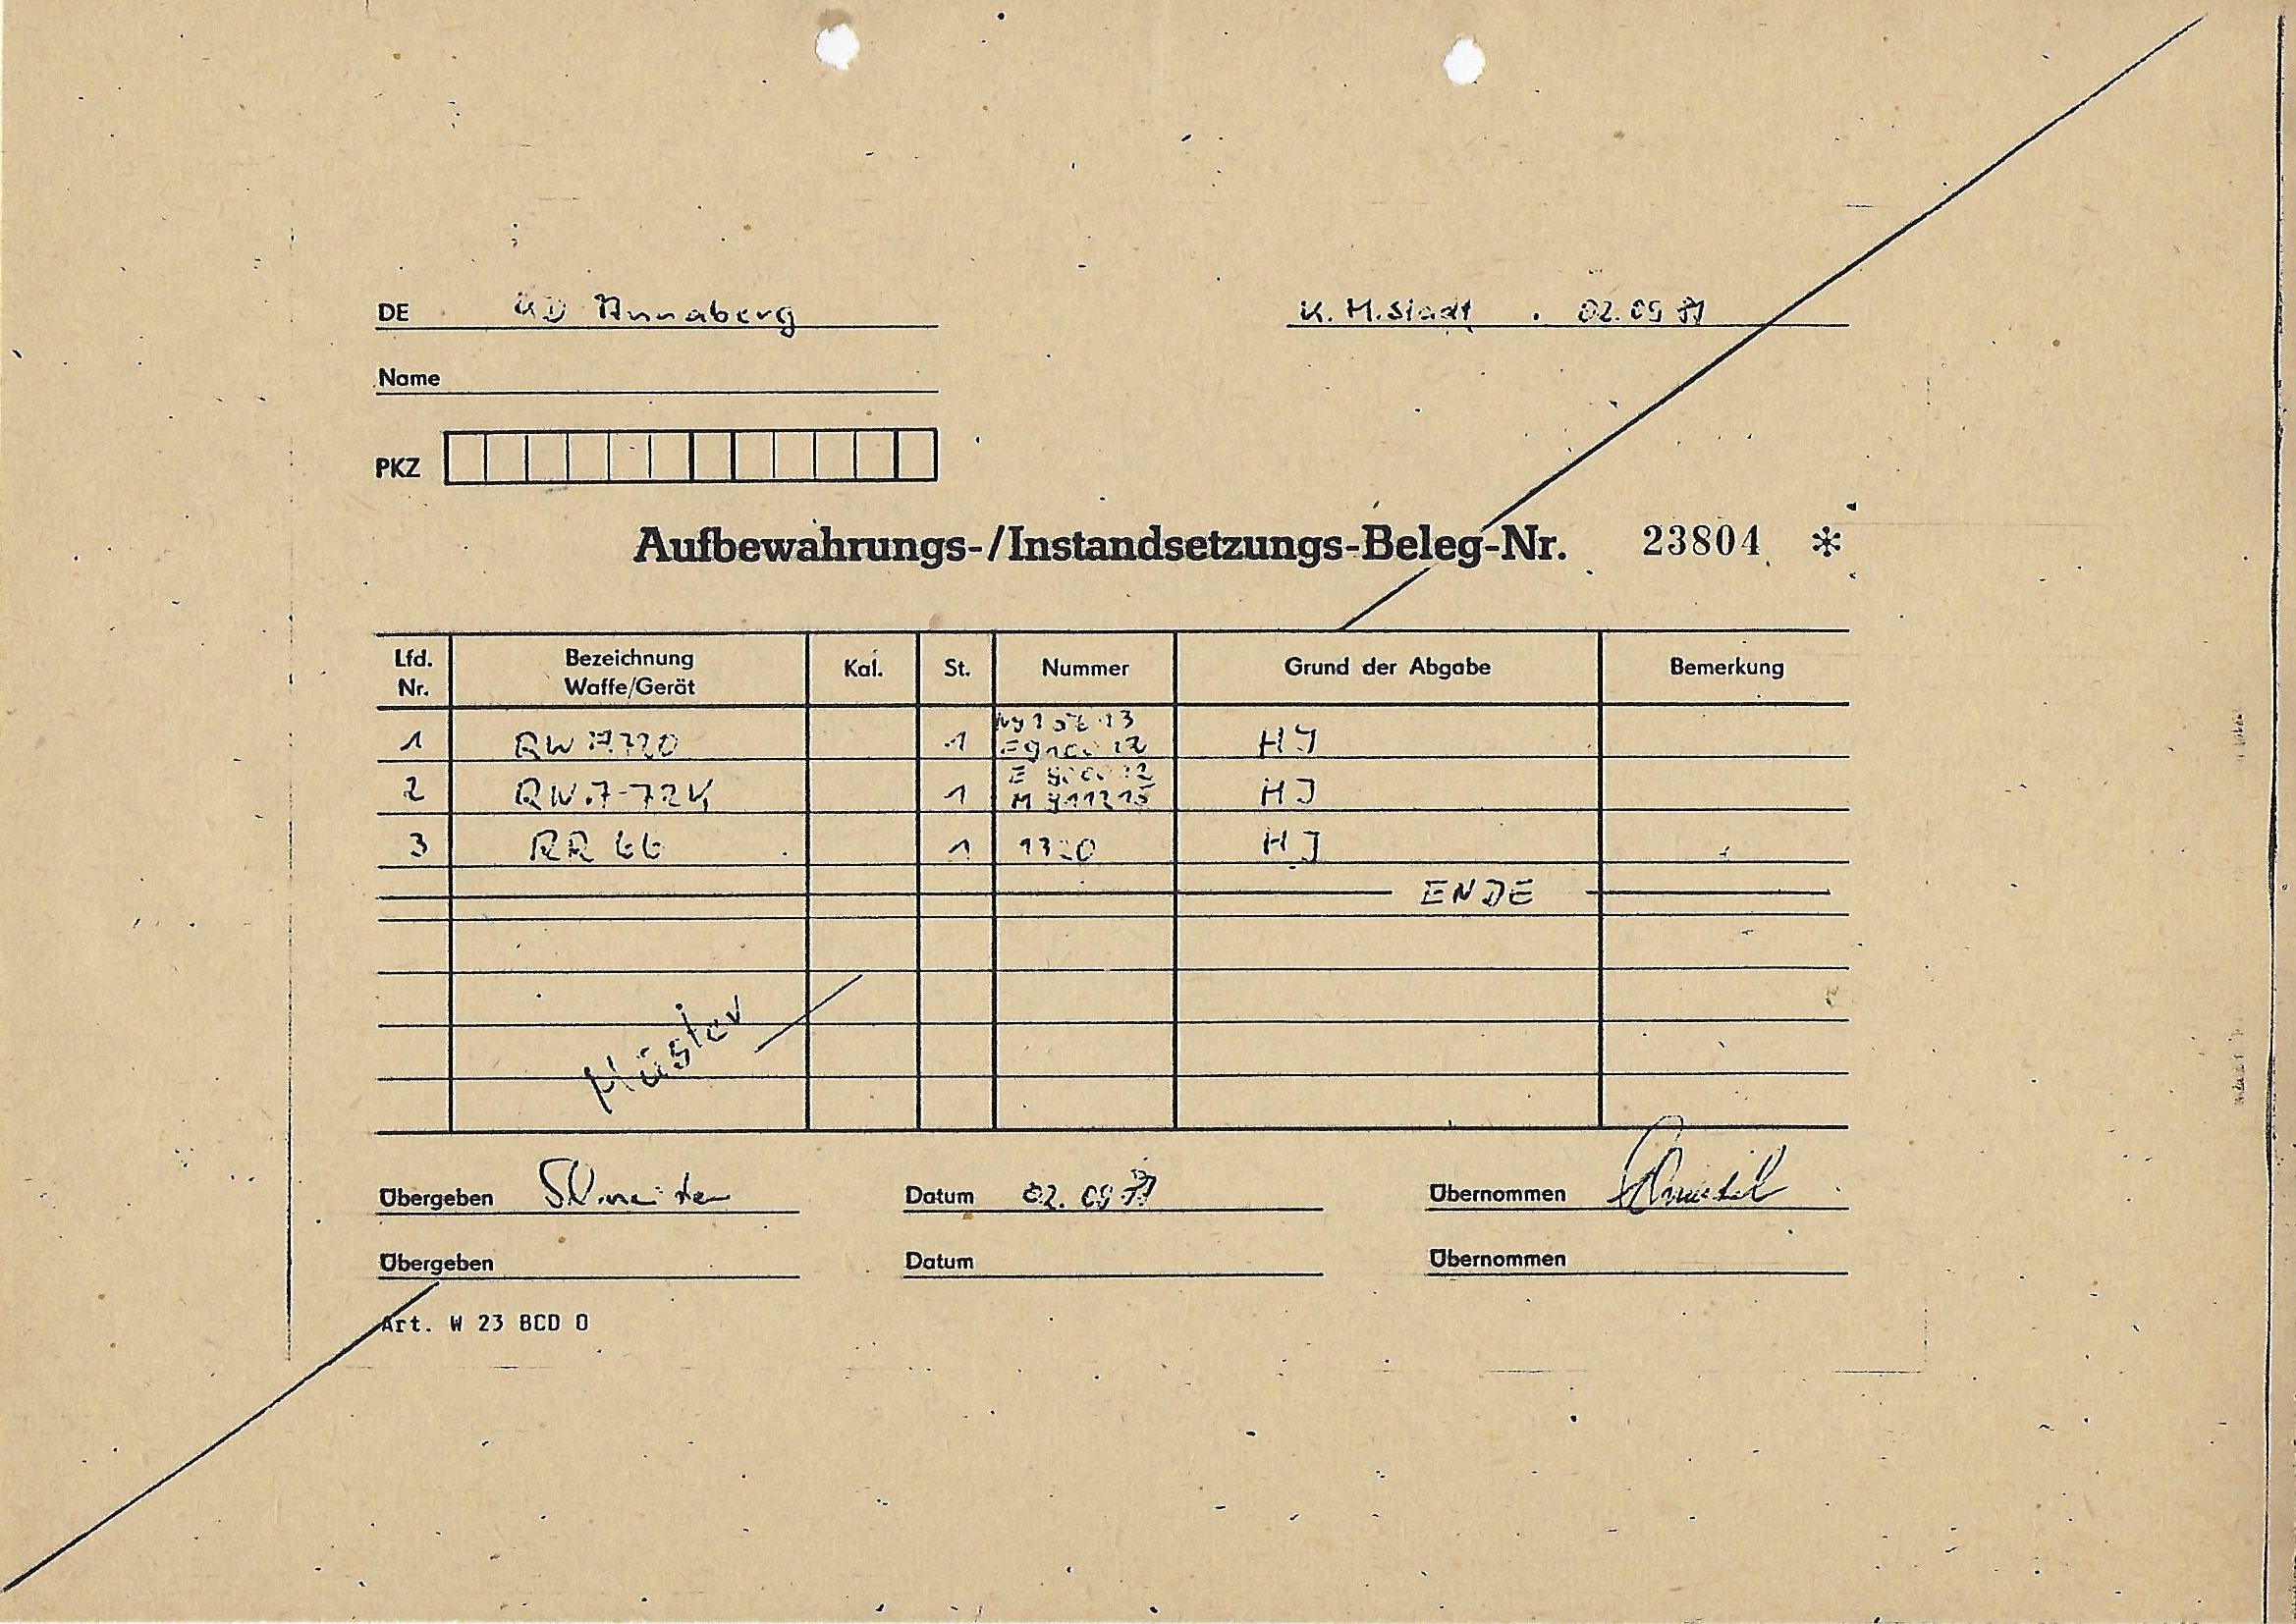 DE KD Annaberg K. M. Stadt . 02.09.
Name
PKZ
Aufbewahrungs-/Instandsetzungs-Beleg-Nr. 23804 *
Lfd. Nr. Bezeichnung Waffe/Gerät Kal. St. Nummer Grund der Abgabe Bemerkung
1 RW 1 HJ
2 RW 7-72 1 HJ
3 RR 66 1 HJ
ENDE
Muster
Übergeben Datum 02. 09 Übernommen
Übergeben Datum Übernommen
Art. W 23 BCD 0